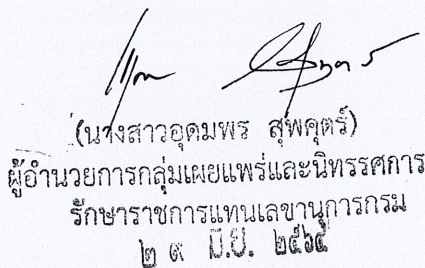 (นางสาวอุดมพร สุพคุตร์)
ผู้อำนวยการกลุ่มเผยแพร่และนิทรรศการ
รักษาราชการแทนเลขานุการกรม
มิ.ย. ๒๕๖๕